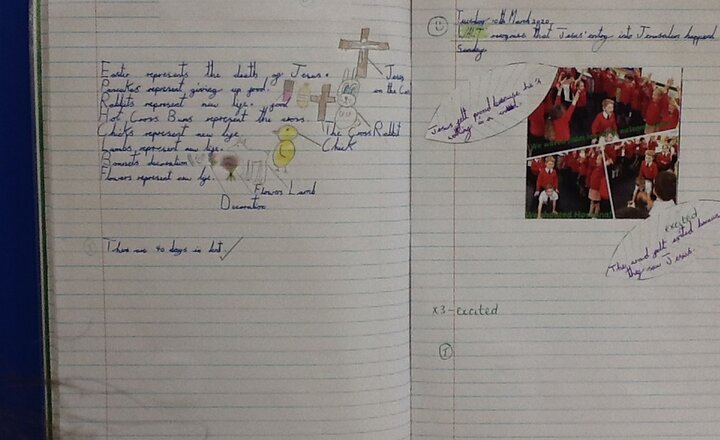 Easter represents the death of Jesus.
Pancakes represent giving up good.
Rabbits represent new lige. good
Hot Cross Buns represent the cross.
Chicks represent new lige.
Lambs represent new lige.
Bonnets decoration
Flowers represent new lige.
Jesus
on the Cros
The Cross Rabbit
Chick
Flowers Lamb
Decoration
There are 40 days in lent.
Tuesday 10th March 2020
LALT recognise that Jesus' entry into Jerusalem happened
Sunday.
Jesus felt proud because he's
We waved
excited
They felt excited because
they saw Jesus.
x3-excited